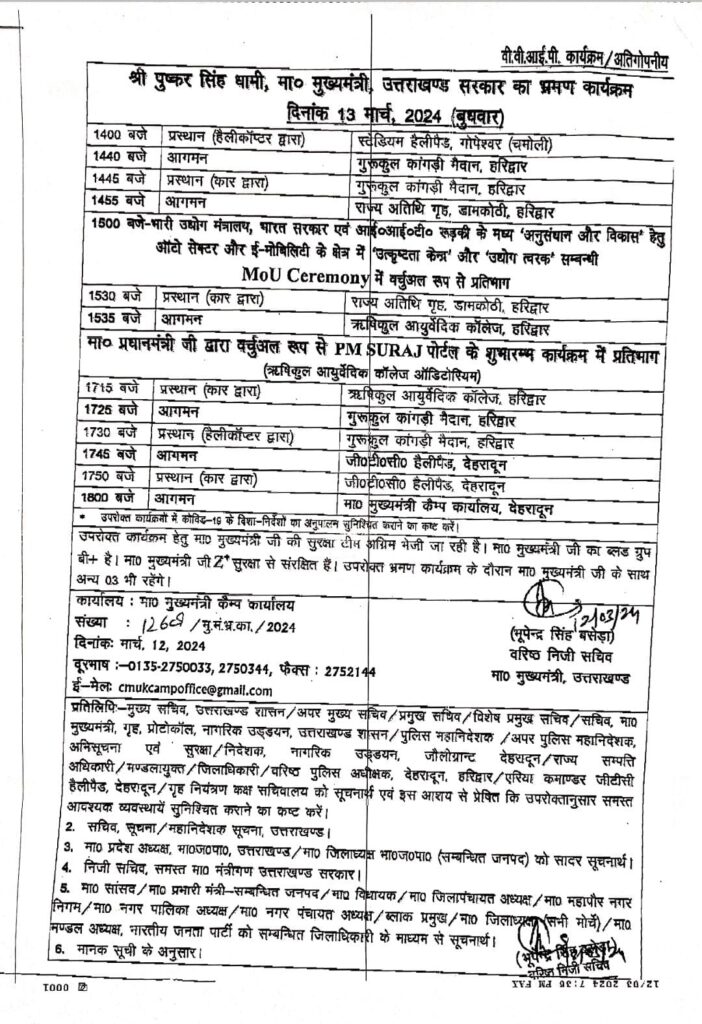 वी.वी.आई.पी. कार्यक्रम/अतिगोपनीय
श्री पुष्कर सिंह धामी, मा० मुख्यमंत्री, उत्तराखण्ड सरकार का भ्रमण कार्यक्रम
दिनांक 13 मार्च, 2024 (बुधवार)
1400 बजे प्रस्थान (हैलीकॉप्टर द्वारा) स्टेडियम हैलीपैड, गोपेश्वर (चमोली)
1440 बजे आगमन गुरूकुल कांगड़ी मैदान, हरिद्वार
1445 बजे प्रस्थान (कार द्वारा) गुरूकुल कांगड़ी मैदान, हरिद्वार
1455 बजे आगमन राज्य अतिथि गृह, डामकोठी, हरिद्वार
1500 बजे-भारी उद्योग मंत्रालय, भारत सरकार एवं आई०आई०टी० रूड़की के मध्य 'अनुसंधान और विकास' हेतु
ऑटो सेक्टर और ई-मोबिलिटी के क्षेत्र में 'उत्कृष्टता केन्द्र' और 'उद्योग त्वरक' सम्बन्धी
MoU Ceremony में वर्चुअल रूप से प्रतिभाग
1530 बजे प्रस्थान (कार द्वारा) राज्य अतिथि गृह, डामकोठी, हरिद्वार
1535 बजे आगमन ऋषिकुल आयुर्वेदिक कॉलेज, हरिद्वार
मा० प्रधानमंत्री जी द्वारा वर्चुअल रूप से PM SURAJ पोर्टल के शुभारम्भ कार्यक्रम में प्रतिभाग
(ऋषिकुल आयुर्वेदिक कॉलेज ऑडिटोरियम)
1715 बजे प्रस्थान (कार द्वारा) ऋषिकुल आयुर्वेदिक कॉलेज, हरिद्वार
1725 बजे आगमन गुरूकुल कांगड़ी मैदान, हरिद्वार
1730 बजे प्रस्थान (हैलीकॉप्टर द्वारा) गुरूकुल कांगड़ी मैदान, हरिद्वार
1745 बजे आगमन जी०टी०सी० हैलीपैड, देहरादून
1750 बजे प्रस्थान (कार द्वारा) जी०टी०सी० हैलीपैड, देहरादून
1800 बजे आगमन मा० मुख्यमंत्री कैम्प कार्यालय, देहरादून
* उपरोक्त कार्यक्रमों में कोविड-19 के दिशा-निर्देशों का अनुपालन सुनिश्चित कराने का कष्ट करें।
उपरोक्त कार्यक्रम हेतु मा० मुख्यमंत्री जी की सुरक्षा टीम अग्रिम भेजी जा रही है। मा० मुख्यमंत्री जी का ब्लड ग्रुप
बी+ है। मा० मुख्यमंत्री जी Z+ सुरक्षा से संरक्षित हैं। उपरोक्त भ्रमण कार्यक्रम के दौरान मा० मुख्यमंत्री जी के साथ
अन्य 03 भी रहेंगे।
कार्यालय : मा० मुख्यमंत्री कैम्प कार्यालय
संख्या : /मु.मं.भ्र.का./2024
दिनांक: मार्च, 12, 2024
दूरभाष :-0135-2750033, 2750344, फैक्स : 2752144
ई-मेल: cmukcampoffice@gmail.com
12/03/24
(भूपेन्द्र सिंह बसेड़ा)
वरिष्ठ निजी सचिव
मा० मुख्यमंत्री, उत्तराखण्ड
प्रतिलिपि:-मुख्य सचिव, उत्तराखण्ड शासन/अपर मुख्य सचिव/प्रमुख सचिव/विशेष प्रमुख सचिव/सचिव, मा०
मुख्यमंत्री, गृह, प्रोटोकॉल, नागरिक उड्डयन, उत्तराखण्ड शासन/पुलिस महानिदेशक/अपर पुलिस महानिदेशक,
अभिसूचना एवं सुरक्षा/निदेशक, नागरिक उड्डयन, जौलीग्रान्ट देहरादून/राज्य सम्पति
अधिकारी/मण्डलायुक्त/जिलाधिकारी/वरिष्ठ पुलिस अधीक्षक, देहरादून, हरिद्वार/एरिया कमाण्डर जीटीसी
हैलीपैड, देहरादून/गृह नियंत्रण कक्ष सचिवालय को सूचनार्थ एवं इस आशय से प्रेषित कि उपरोक्तानुसार समस्त
आवश्यक व्यवस्थायें सुनिश्चित कराने का कष्ट करें।
2. सचिव, सूचना/महानिदेशक सूचना, उत्तराखण्ड।
3. मा० प्रदेश अध्यक्ष, भा०ज०पा०, उत्तराखण्ड/मा० जिलाध्यक्ष भा०ज०पा० (सम्बन्धित जनपद) को सादर सूचनार्थ।
4. निजी सचिव, समस्त मा० मंत्रीगण उत्तराखण्ड सरकार।
5. मा० सांसद/मा० प्रभारी मंत्री-सम्बन्धित जनपद/मा० विधायक/मा० जिलापंचायत अध्यक्ष/मा० महापौर नगर
निगम/मा० नगर पालिका अध्यक्ष/मा० नगर पंचायत अध्यक्ष/ब्लाक प्रमुख/मा० जिलाध्यक्ष (सभी मोर्चे)/मा०
मण्डल अध्यक्ष, भारतीय जनता पार्टी को सम्बन्धित जिलाधिकारी के माध्यम से सूचनार्थ।
6. मानक सूची के अनुसार।
(भूपेन्द्र सिंह बसेड़ा)
वरिष्ठ निजी सचिव
12/03 2024 7:36 PM FAX
0001